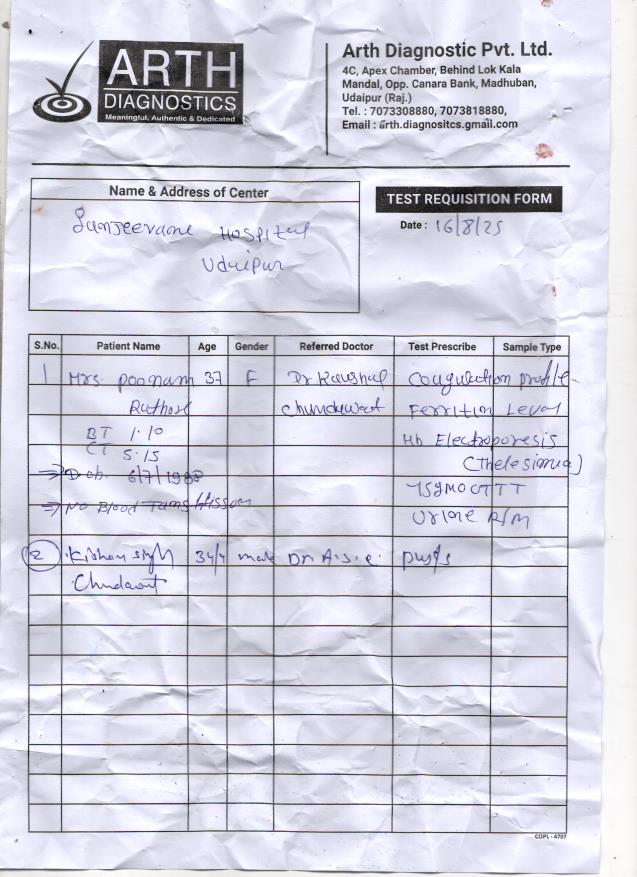 ARTH
DIAGNOSTICS
Meaningful, Authentic & Dedicated
Arth Diagnostic Pvt. Ltd.
4C, Apex Chamber, Behind Lok Kala
Mandal, Opp. Canara Bank, Madhuban,
Udaipur (Raj.)
Tel. : 7073308880, 7073818880,
Email : arth.diagnositcs.gmail.com
Name & Address of Center
Sunjeevane Hospital
Udaipur
TEST REQUISITION FORM
Date : 16/8/25
S.No. Patient Name Age Gender Referred Doctor Test Prescribe Sample Type
1 Mrs. Poonam 37 F Dr Kaushal Coagulation profile
Rathore Chundawat Ferrition Level
BT 1.10 Hb Electroporesis
CT 5.15 (Thelesimia)
Dob. 6/7/1988
No Blood
Urine R/M
2 Kishan Singh 34/y male Dr. A.S.C.
Chudawat
COPL - 4707